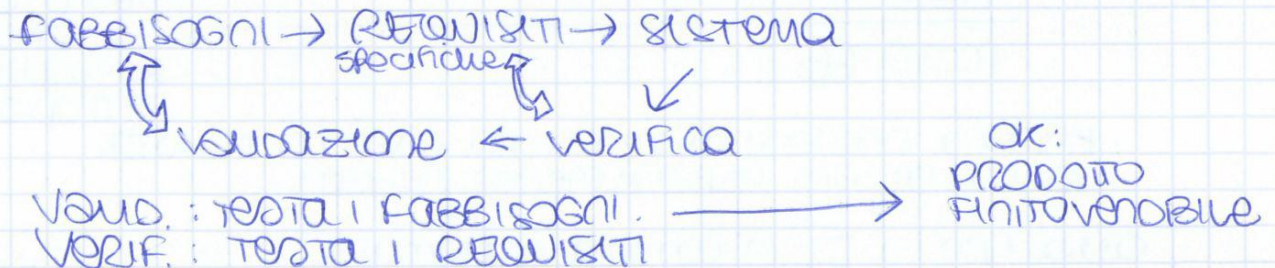 FABBISOGNI → REQUISITI → SISTEMA
specifiche
VALIDAZIONE ← VERIFICA
OK:
PRODOTTO
FINITO VENDIBILE
VALID. : TESTA I FABBISOGNI. →
VERIF. : TESTA I REQUISITI